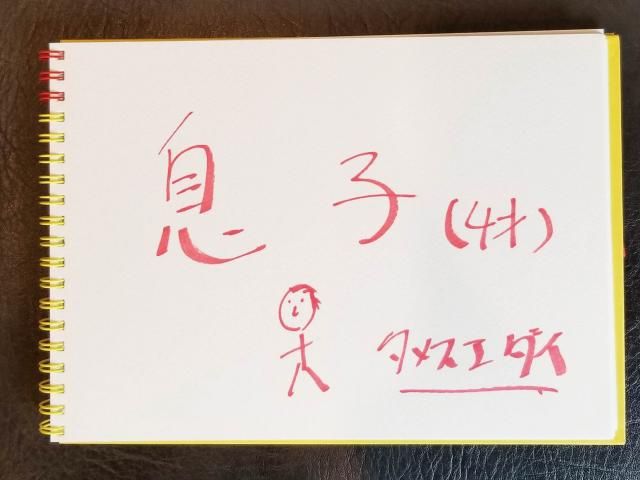 息子(4才)
タメスエダイ